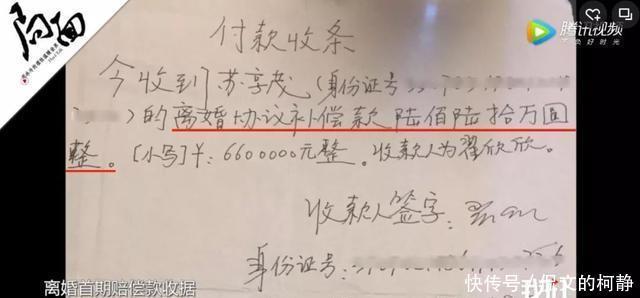 局面
腾讯视频
不负好时光
付款收条
今收到苏享茂(身份证号
)的离婚协议补偿款陆佰陆拾万圆
整。[小写]¥:6600000元整。收款人为翟欣欣。
收款人签字:
身份证号:
离婚首期赔偿款收据
快传号/佩文的柯静